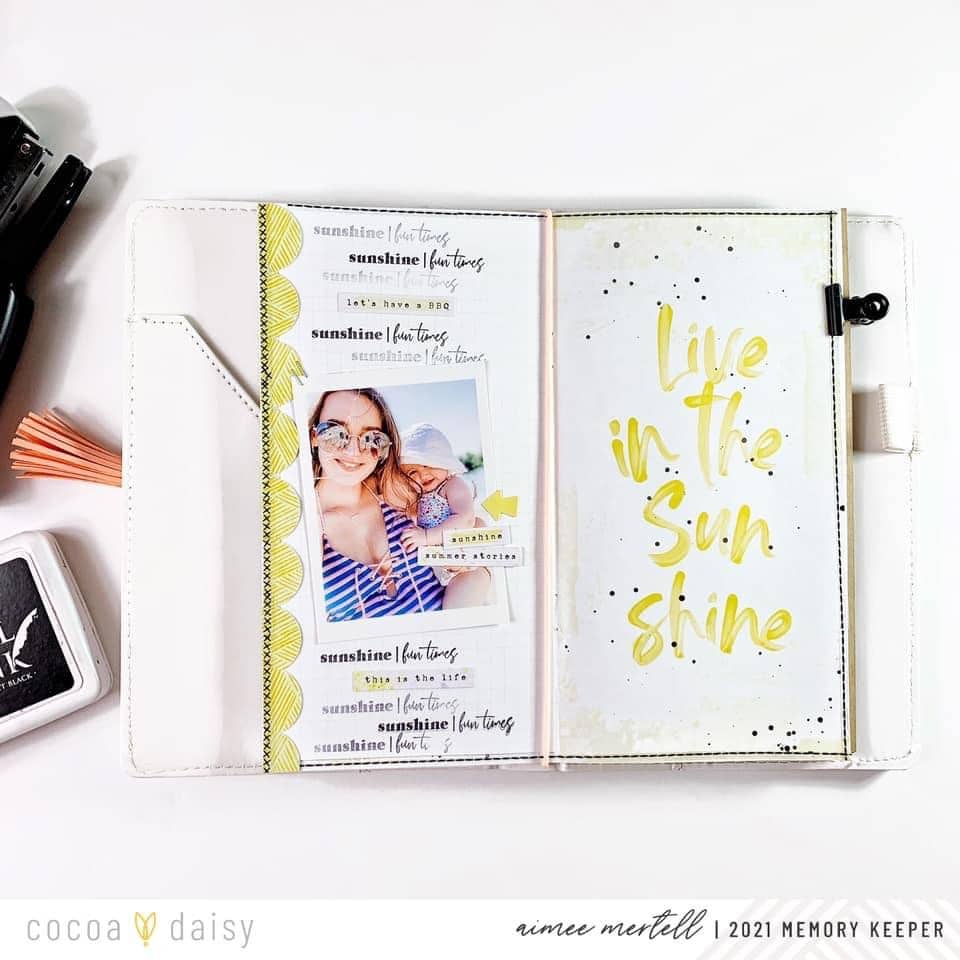 sunshine | fun times
sunshine | fun times
sunshine | fun times
let's have a BBQ
sunshine | fun times
sunshine | fun times
sunshine
summer stories
sunshine | fun times
this is the life
sunshine | fun times
sunshine | fun times
sunshine | fun ti s
Live
in the
Sun
shine
T BLACK
cocoa daisy
aimee mertell | 2021 MEMORY KEEPER